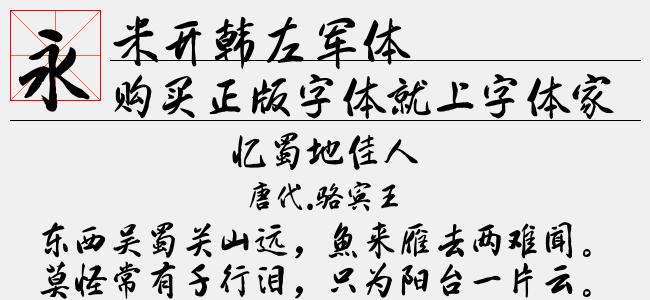 永
米开韩左军体
购买正版字体就上字体家
忆蜀地佳人
唐代.骆宾王
东西吴蜀关山远，魚来雁去两难闻。
莫怪常有千行泪，只为阳台一片云。